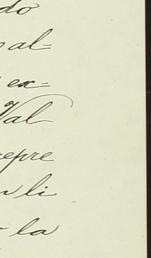 do
al=
ex=
Val
repre
n li
la